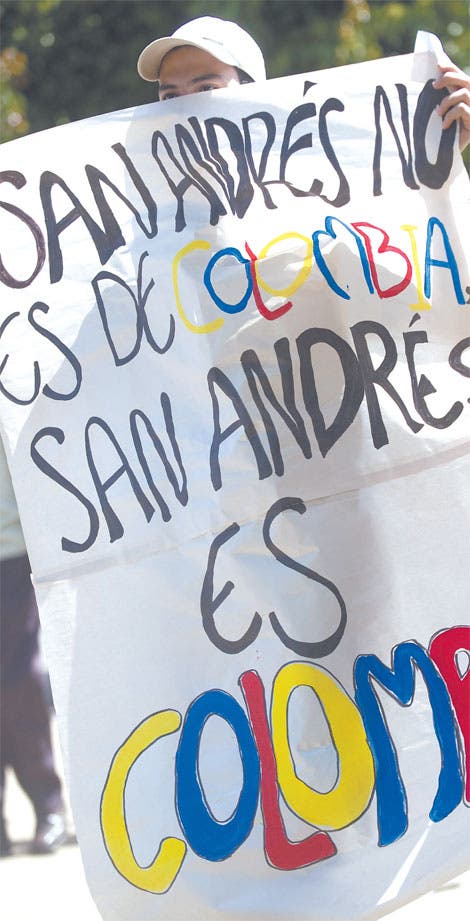 SAN ANDRÉS NO
ES DE COLOMBIA,
SAN ANDRÉS
ES
COLOMB